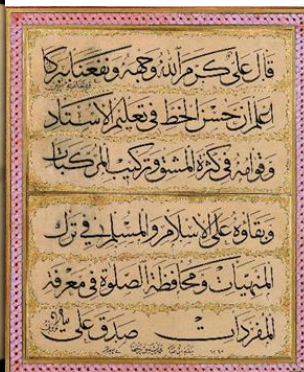 قال علي كرم الله وجهه ونفعنا ببركا
اعلم ان حسن الخط في تعليم الاستاد
وقوامه في كثرة المشق وتركيب المركبات
وبقاؤه على الاسلام والمسلم في ترك
المنهيات ومحافظة الصلوة في معرفة
المفردات صدق علي